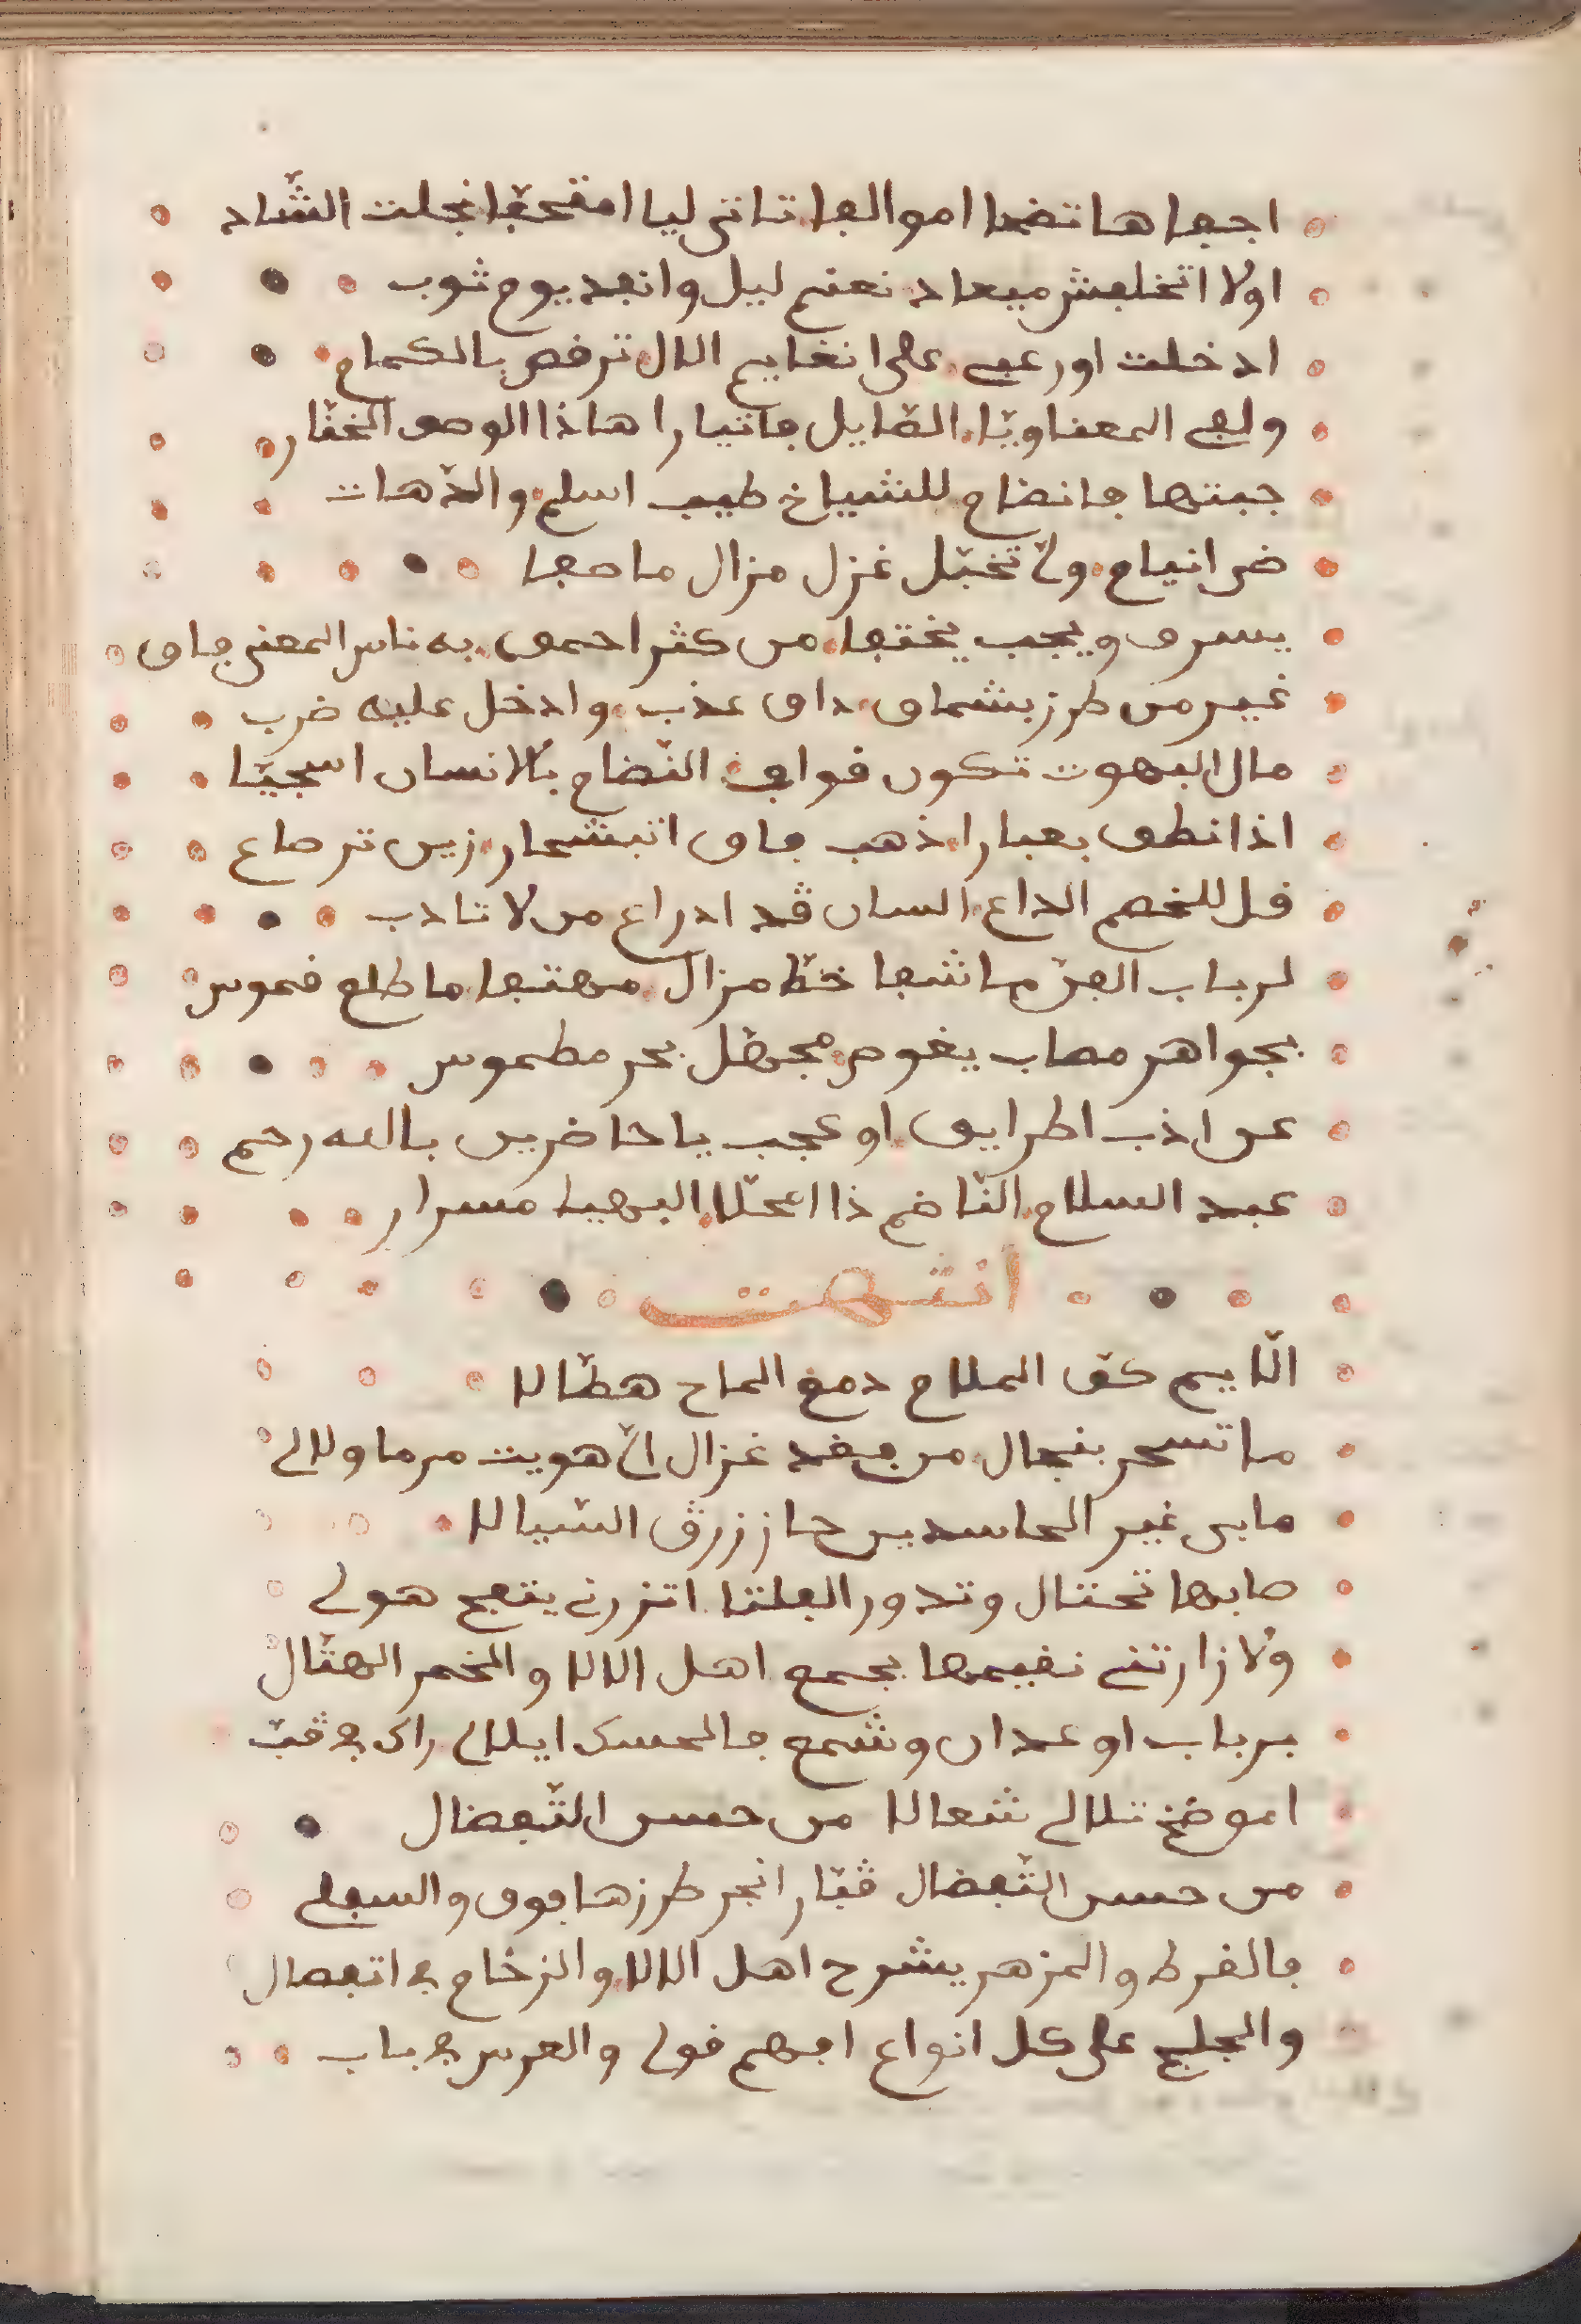 اجفا هاتضما اموالعا تاتي ليا امتحفا نجلت الشاد
اولا اتخلفش ميعاد نغنم ليل وانفد يوم ثوب
ادخلت اورغب على انغايم الال ترفص بالكماح
ولفى المعنا ويا الضايل جاتيارا هاذا الوصف الختار
جبتها فانضاح للشياخ طيب اسلم والدهات
ضر انياح ولى تخبل غزل مزال ماصفا
يسرى ويجب يختفا من كثر احمى به ناس المعنى فاق
غير من طرز بشماق داق عذب وادخل عليه ضرب
مال البهوت تكون فوافى النضاح بالانسان اسجيا
اذا نطق بعبارا ذهب فاق اتبشحار زين ترصاع
قل للخصم الداع السان قد ادراع من لا تادب
لرباب الفن ماشفا خط مزال مهتفا ما طلع فموس
بجواهر مصاب يغوص مجهل بحر مطموس
عن اذب اطرايق او عجب يا حاضرين بالله رحم
عبد السلاح الناضم ذا احلا البهيا مسرار
انتهت
الايم كف الملاح دمع الماح هطالا
ما تسحر بنجال من بفد غزال الى هويت مرماولالى
مابى غير الحاسدين حاز زرق السيالا
صابها تحتال وتدور الفلتا اتزرنى يتفج هولى
ولا زارتنى نفيمها بجمع اهل الالا والخمر الهتال
برباب او عدان وشمع فالحسك ايلالى راى فى قبت
اموضخ تلالى شعالا من حسن التفضال
من حسن التفضال قبار انجر طرزها فوق والسفلى
فالفرط والمزهر يشرح اهل الالا والزخاح فى اتفصال
والجليج على كل انواع افهم فولى والعرس فى باب